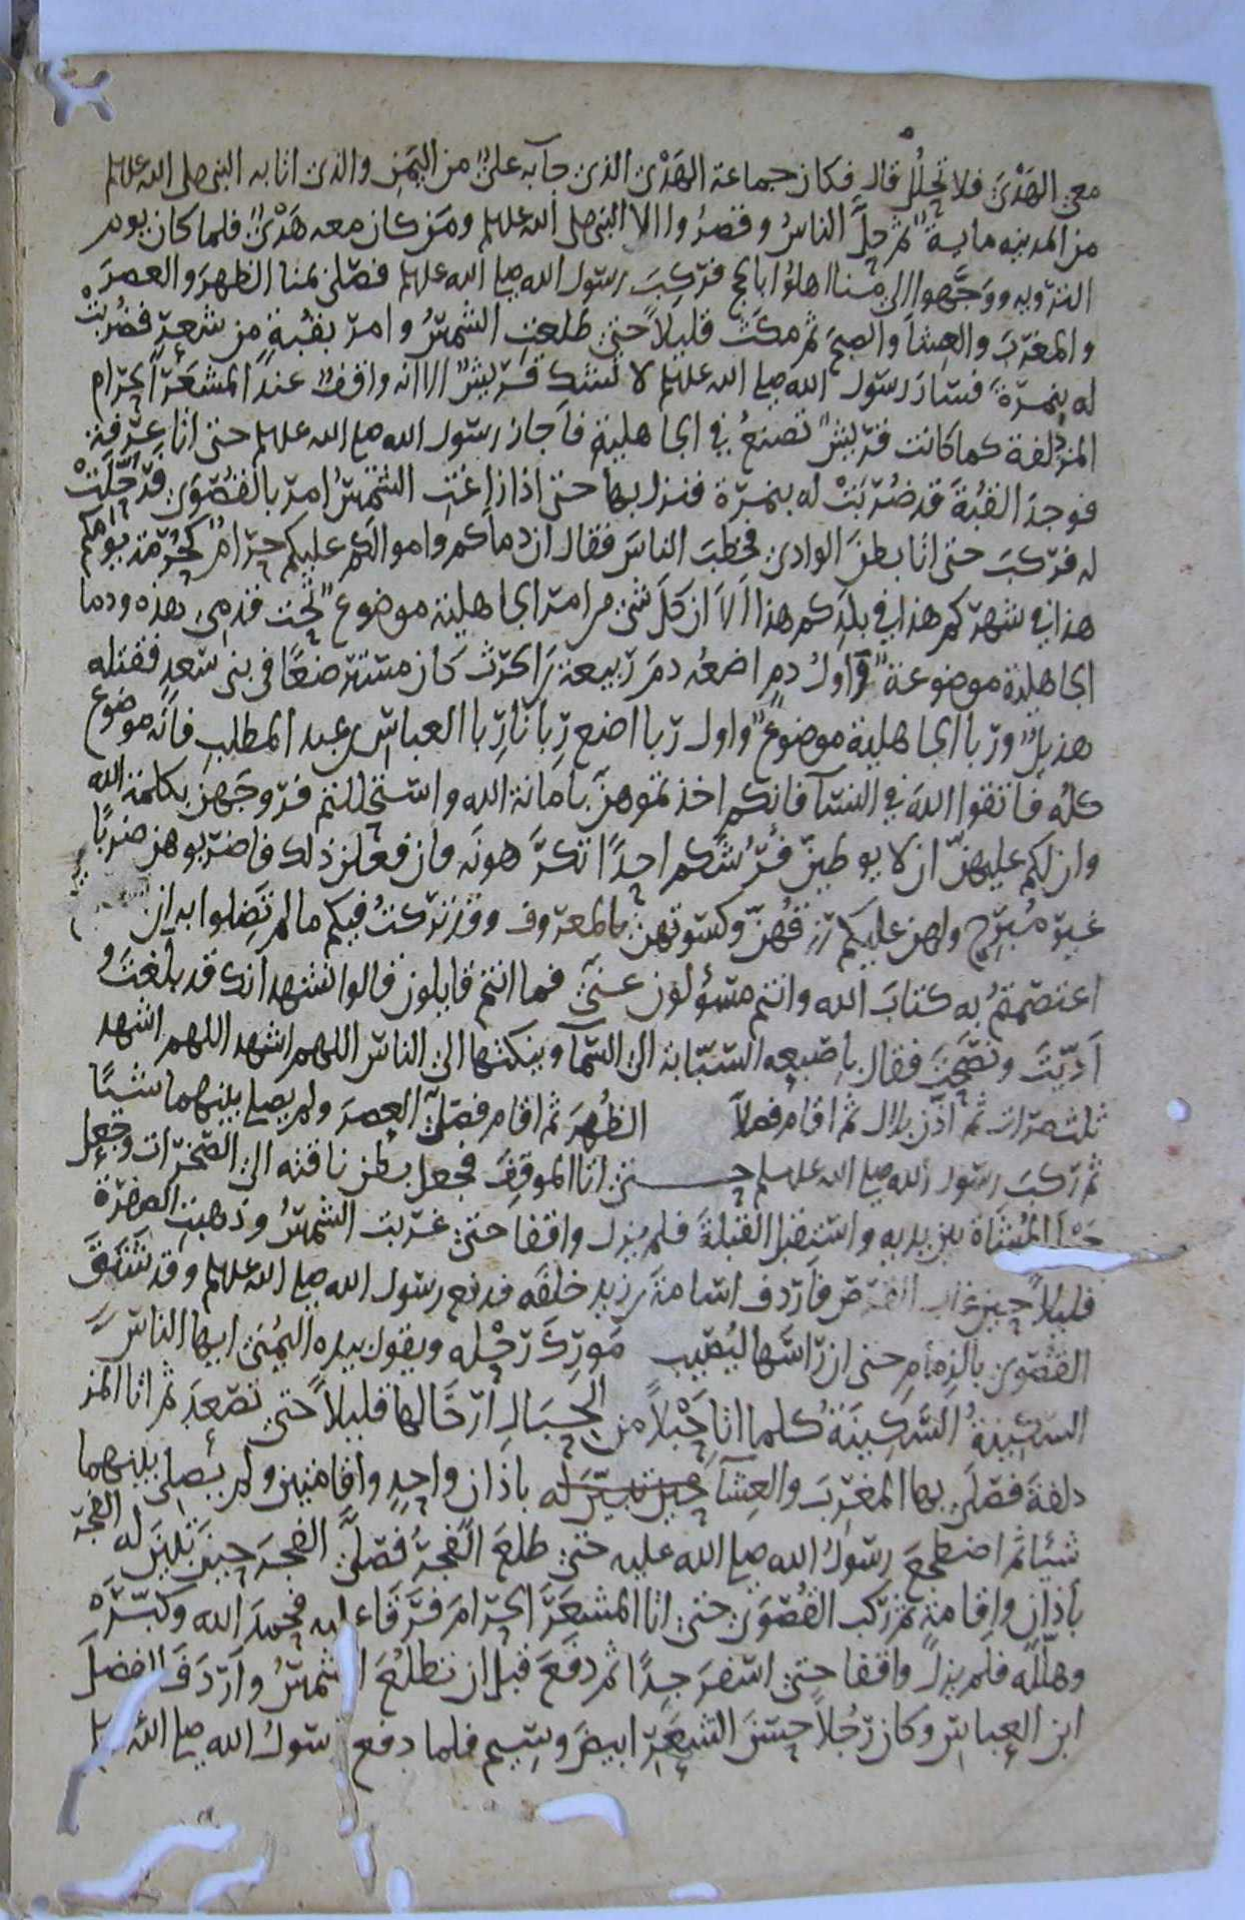 معي الهَدْيَ فلا تَحِلُّ قال فكان جماعة الهَدْيِ الذي جآبه عليٌّ من اليَمَنِ والذي اتا به النبي صلى الله علىه
من المدينه مايةً ثم حلَّ الناسُ وقصرُوا الا النبي صلى الله علىه ومَن كان معه هَدْيٌ فلما كان يوم
الترويه ووَجَّهوا الى منا اهلوُا بالحج فركِبَ رسول الله صلى الله علىه فصلى بمنا الظهرَ والعصرَ
والمغرَبَ والعشآ والصبحَ ثم مكثَ قليلاً حتى طلعتِ الشمسُ وامر بقُبةٍ من شعرٍ فضُربتْ
له بنمرةَ فسارَ رسول الله صلى الله علىه لا تشك قريشٌ الا انه واقفٌ عند المشعَرِ الحرام
المزدَلفة كما كانت قريشٌ تصنعُ في الجاهلية فاجاز رسول الله صلى الله علىه حتى اتا عَرَفةَ
فوجدَ القُبةَ قد ضُرِبَتْ له بنمرة فنزل بها حتى اذا زاغت الشمسُ امر بالقَصْوَى فرُحّلَتْ
له فركبَ حتى اتا بطنَ الوادي فخطبَ الناسَ فقال ان دماكم واموالكم عليكم حرامٌ كحُرمةِ يومكم
هذا في شهركم هذا في بلدكم هذا اَلاَ ان كلَ شي من امر الجاهلية موضوعٌ تحت قدمي هذه ودما
الجاهلية موضوعةٌ واول دمٍ اضعُه دمَ ربيعةَ بن الحرث كان مسترضعًا في بني سَعدٍ فقتله
هذيلٌ وربا الجاهلية موضوعٌ واول ربا اضع رِبَانَا رِبا العباس بن عبد المطلبِ فانه موضوع
كلُه فاتقوا اللهَ في النسآ فانكم اخذتموهنّ بامانة الله واستحللتم فروجَهن بكلمة الله
وان لكم عليهنّ ان لا يوطين فُرُشَكم احدًا تكرَهونَه فان فعلن ذلك فاضربوهن ضربًا
غير مُبَرّحٍ ولهن عليكم رزقُهنّ وكسوتهن بالمعروف وقد تركتُ فيكم ما لم تَضلوا به ان
اعتصمتمُ به كتابَ الله وانتم مسؤلون عني فما انتم قايلون قالوا نشهد انك قد بلغتَ و
اَدّيتَ ونصَحتَ فقال باصبعِه السبّابة الى السمآ وينكتها الى الناس اللهم اشهد اللهم اشهد
ثلث مرات ثم اذّن بلال ثم اقام فصلّا الظُهرَ ثم اقام فصَلّى العصرَ ولم يصل بينهما شيئًا
ثم ركبَ رسول الله صلى الله علىه وسلم حتى اتا الموقِفَ فجعل بطن ناقته الى الصَخَرات وجعل
حبل المُشَاة بين يديه واستقبل القبلةَ فلم يزل واقفا حتى غربت الشمسُ وذهبتِ الصفرة
قليلاً حين غاب القرص فاَردف اسامةَ بن زيدٍ خلفَه فدفع رسول الله صلى الله علىه وقد شَنَقَ
القَصْوَى بالزِمام حتى ان رَاسَها ليُصِيب مَورِكَ رَحْله ويقول بيده اليُمْنى ايها الناسُ
السكينةُ السَّكِينَةُ كلما اتا حَبْلاً من الحِبَالِ اَرْخَا لها قليلاً حتى تصْعَدَ ثم اتا المز
دلفةَ فصَلى بها المغربَ والعِشآ باذان واحِدٍ واقامتين ولم يُصلي بينهما
شيئا ثم اضطجعَ رسولُ الله صلى الله عليه حتى طلعَ الفجرُ فصَلّى الفجرَ حِينَ تَبَيّنَ له الفجر
بأذانٍ واقامةٍ ثم ركبَ القُصْوَى حتى اتا المشعَرَ الحرَامَ فرَقَاَ عليه فحمِدَ الله وكبّرَه
وهَلّله فلم يزلْ واقفا حتى اسْفرَ جِدًا ثم دفَعَ قبل ان تطلُعَ الشمسُ وارْدَفَ الفضلَ
ابن العباس وكان رَجُلاً حسَنَ الشعَرِ ابيضَ وسيم فلما دفع رسولُ الله صلى الله علىه